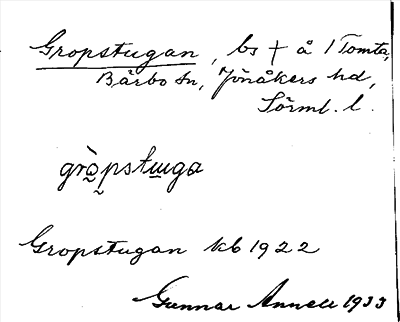 Gropstugan, bs † å 1 Tomta,
Bärbo sn, Jönåkers hd,
Sörml. l.
grò̰pstɯga
Gropstugan kb 1922
Gunnar Annell 1933